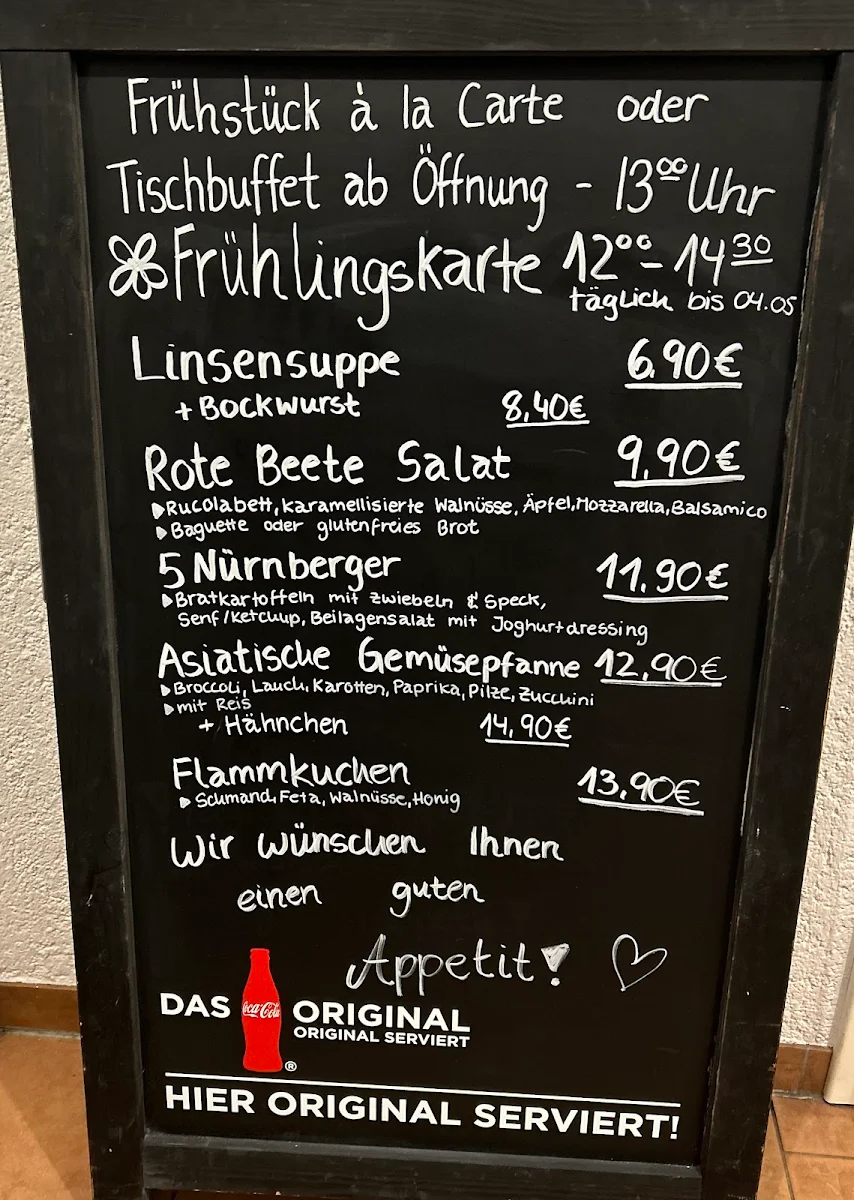 Frühstück à la Carte oder
Tischbuffet ab Öffnung - 13⁰⁰ Uhr
Frühlingskarte 12⁰⁰ - 14³⁰
täglich bis 04.05
Linsensuppe 6,90€
+ Bockwurst 8,40€
Rote Beete Salat 9,90€
▶Rucolabett, karamellisierte Walnüsse, Äpfel, Mozzarella, Balsamico
▶Baguette oder glutenfreies Brot
5 Nürnberger 11,90€
▶Bratkartoffeln mit Zwiebeln & Speck,
Senf/Ketchup, Beilagensalat mit Joghurtdressing
Asiatische Gemüsepfanne 12,90€
▶Broccoli, Lauch, Karotten, Paprika, Pilze, Zucchini
▶mit Reis
+ Hähnchen 14,90€
Flammkuchen 13,90€
▶Schmand, Feta, Walnüsse, Honig
Wir wünschen Ihnen
einen guten
Appetit! ♡
DAS Coca-Cola ORIGINAL
ORIGINAL SERVIERT
®
HIER ORIGINAL SERVIERT!